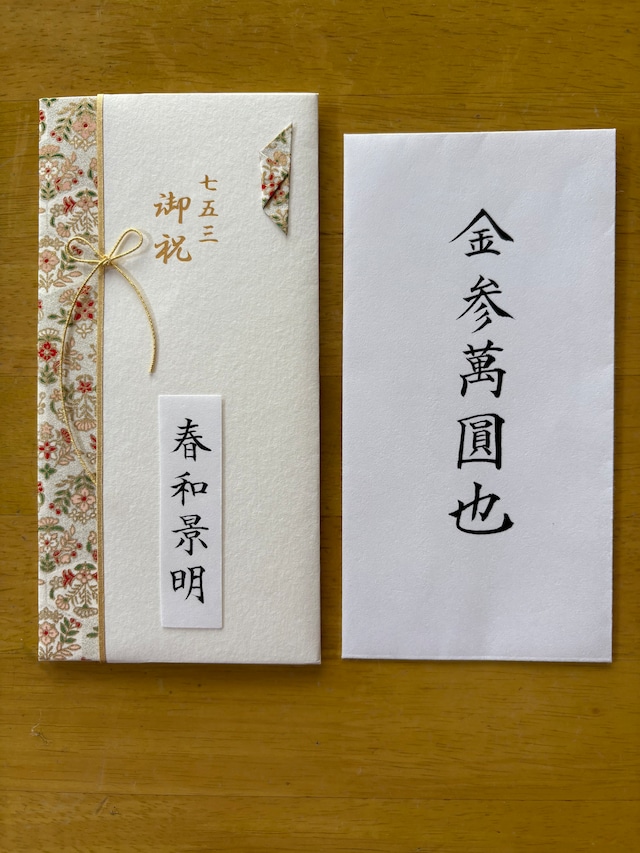 七五三
御祝
春和景明
金参萬圓也